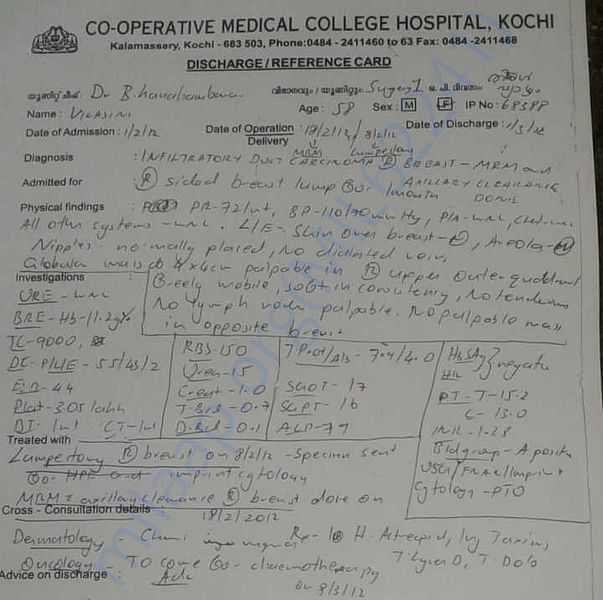 CO-OPERATIVE MEDICAL COLLEGE HOSPITAL, KOCHI
Kalamassery, Kochi - 683 503, Phone:0484 - 2411460 to 63 Fax: 0484 -2411468
DISCHARGE / REFERENCE CARD
യൂണിറ്റ് ചീഫ് : Dr വിഭാഗവും / യൂണിറ്റും : Surgery 1 ഒ. പി. ദിവസം
Name : VILASINI Age : 58 Sex : M F IP No : 68388
Date of Admission : 1/2/12 Date of Operation / Delivery : 18/2/12, 8/2/12 Date of Discharge : 1/3/12
MRM Lumpectomy
Diagnosis : INFILTRATORY DUCT CARCINOMA (R) BREAST - MRM and
AXILLARY CLEARANCE DONE
Admitted for (R) sided breast lump for 1 month
Physical findings : PR-72/mt, BP-110/70mmHg, P/A-WNL, Chest-WNL
All other systems - WNL. L/E - Skin over breast - (N), Areola - (N)
Nipples - normally placed, No dialated vein,
Globular mass of 4x4cm palpable in (R) upper outer quadrant
freely mobile, soft in consistency, No tenderness
No lymph node palpable. No palpable mass
in opposite breast
Investigations :
URE - WNL
BRE - Hb - 11.2g%
TC - 9000,
DC - P/L/E - 55/43/2
ESR - 44
Plat - 3.05 lakh
BT - CT -
RBS - 150
Urea - 15
Creat - 1.0
T. Bil - 0.7
D. Bil - 0.1
T Prot/Alb - 7.4/4.0
SGOT - 17
SGPT - 16
ALP - 79
HBsAg
HIV negative
PT - T - 15.2
C - 13.0
INR - 1.28
Bld group - A positive
USG/FNAC/Imprint
Cytology - PTO
Treated with :
Lumpectomy (R) breast on 8/2/12 - Specimen sent
for HPE and imprint cytology
MRM axillary clearance (R) breast done on
18/2/2012
Cross - Consultation details :
Dermatology - Rx - H. Actrapid, Inj Taxim,
Oncology - To come for chaemotherapy
on 8/3/12
T. Dolo
Advice on discharge : Adv